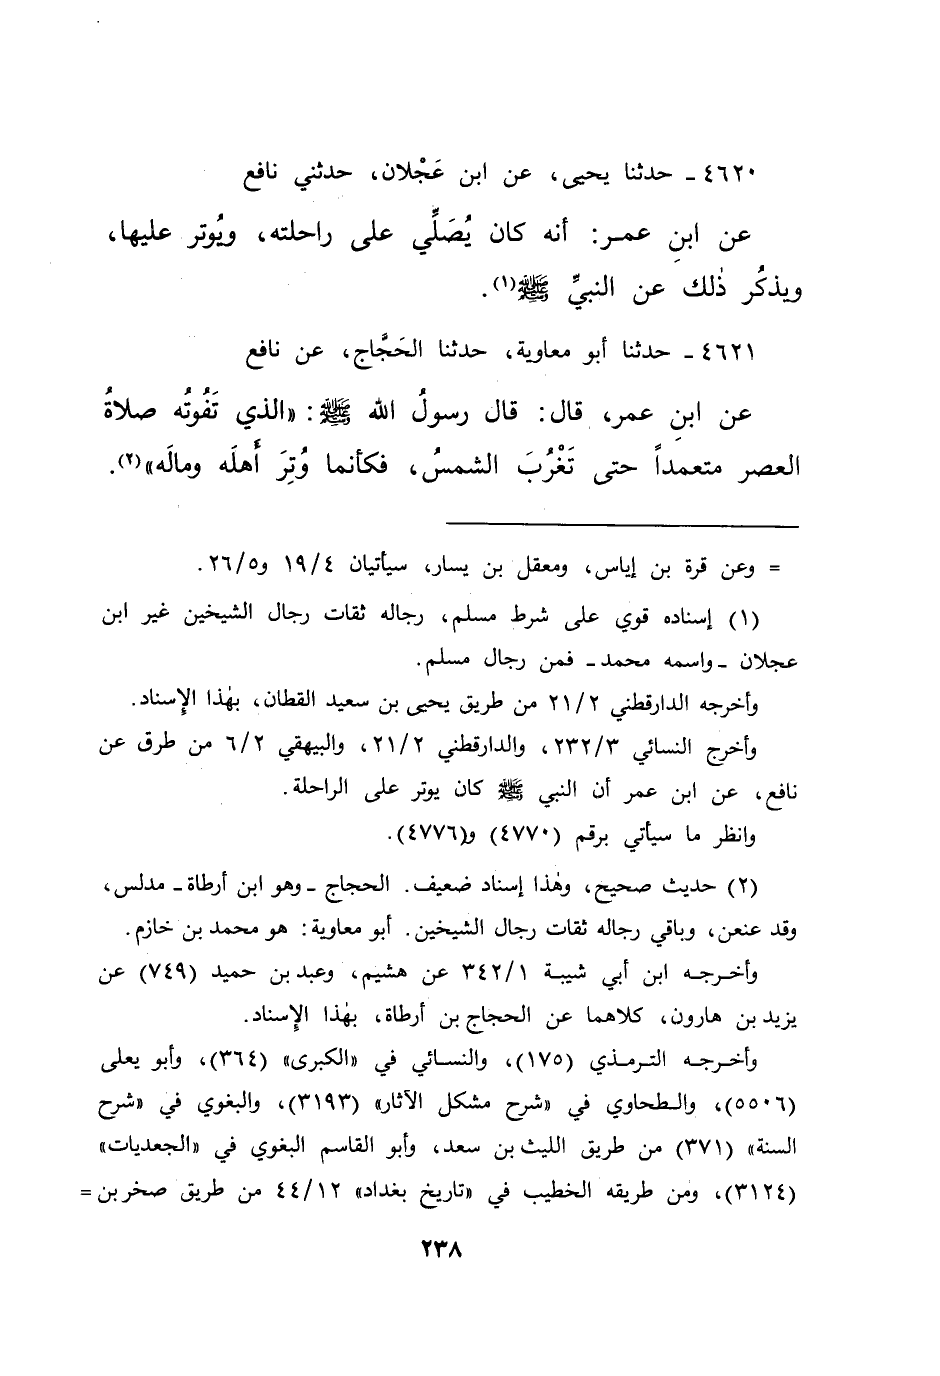 ٤٦٢٠ - حدثنا يحيى، عن ابن عَجْلان، حدثني نافع
عن ابنِ عمر: أنه كان يُصَلِّي على راحلته، ويُوتر عليها،
ويذكُر ذٰلك عن النبيِّ ﷺ(١).
٤٦٢١ - حدثنا أبو معاوية، حدثنا الحَجَّاج، عن نافع
عن ابنِ عمر، قال: قال رسولُ الله ﷺ: «الذي تَفُوتُه صلاةُ
العصر متعمداً حتى تَغْرُبَ الشمسُ، فكأنما وُتِرَ أَهلَه ومالَه»(٢).
= وعن قرة بن إياس، ومعقل بن يسار، سيأتيان ١٩/٤ و٢٦/٥.
(١) إسناده قوي على شرط مسلم، رجاله ثقات رجال الشيخين غير ابن
عجلان - واسمه محمد - فمن رجال مسلم.
وأخرجه الدارقطني ٢١/٢ من طريق يحيى بن سعيد القطان، بهٰذا الإسناد.
وأخرج النسائي ٢٣٢/٣، والدارقطني ٢١/٢، والبيهقي ٦/٢ من طرق عن
نافع، عن ابن عمر أن النبي ﷺ كان يوتر على الراحلة.
وانظر ما سيأتي برقم (٤٧٧٠) و(٤٧٧٦).
(٢) حديث صحيح، وهٰذا إسناد ضعيف. الحجاج - وهو ابن أرطاة - مدلس،
وقد عنعن، وباقي رجاله ثقات رجال الشيخين. أبو معاوية: هو محمد بن خازم.
وأخرجه ابن أبي شيبة ٣٤٢/١ عن هشيم، وعبد بن حميد (٧٤٩) عن
يزيد بن هارون، كلاهما عن الحجاج بن أرطاة، بهٰذا الإسناد.
وأخرجه الترمذي (١٧٥)، والنسائي في «الكبرى» (٣٦٤)، وأبو يعلى
(٥٥٠٦)، والطحاوي في «شرح مشكل الآثار» (٣١٩٣)، والبغوي في «شرح
السنة» (٣٧١) من طريق الليث بن سعد، وأبو القاسم البغوي في «الجعديات»
(٣١٢٤)، ومن طريقه الخطيب في «تاريخ بغداد» ٤٤/١٢ من طريق صخر بن =
٢٣٨